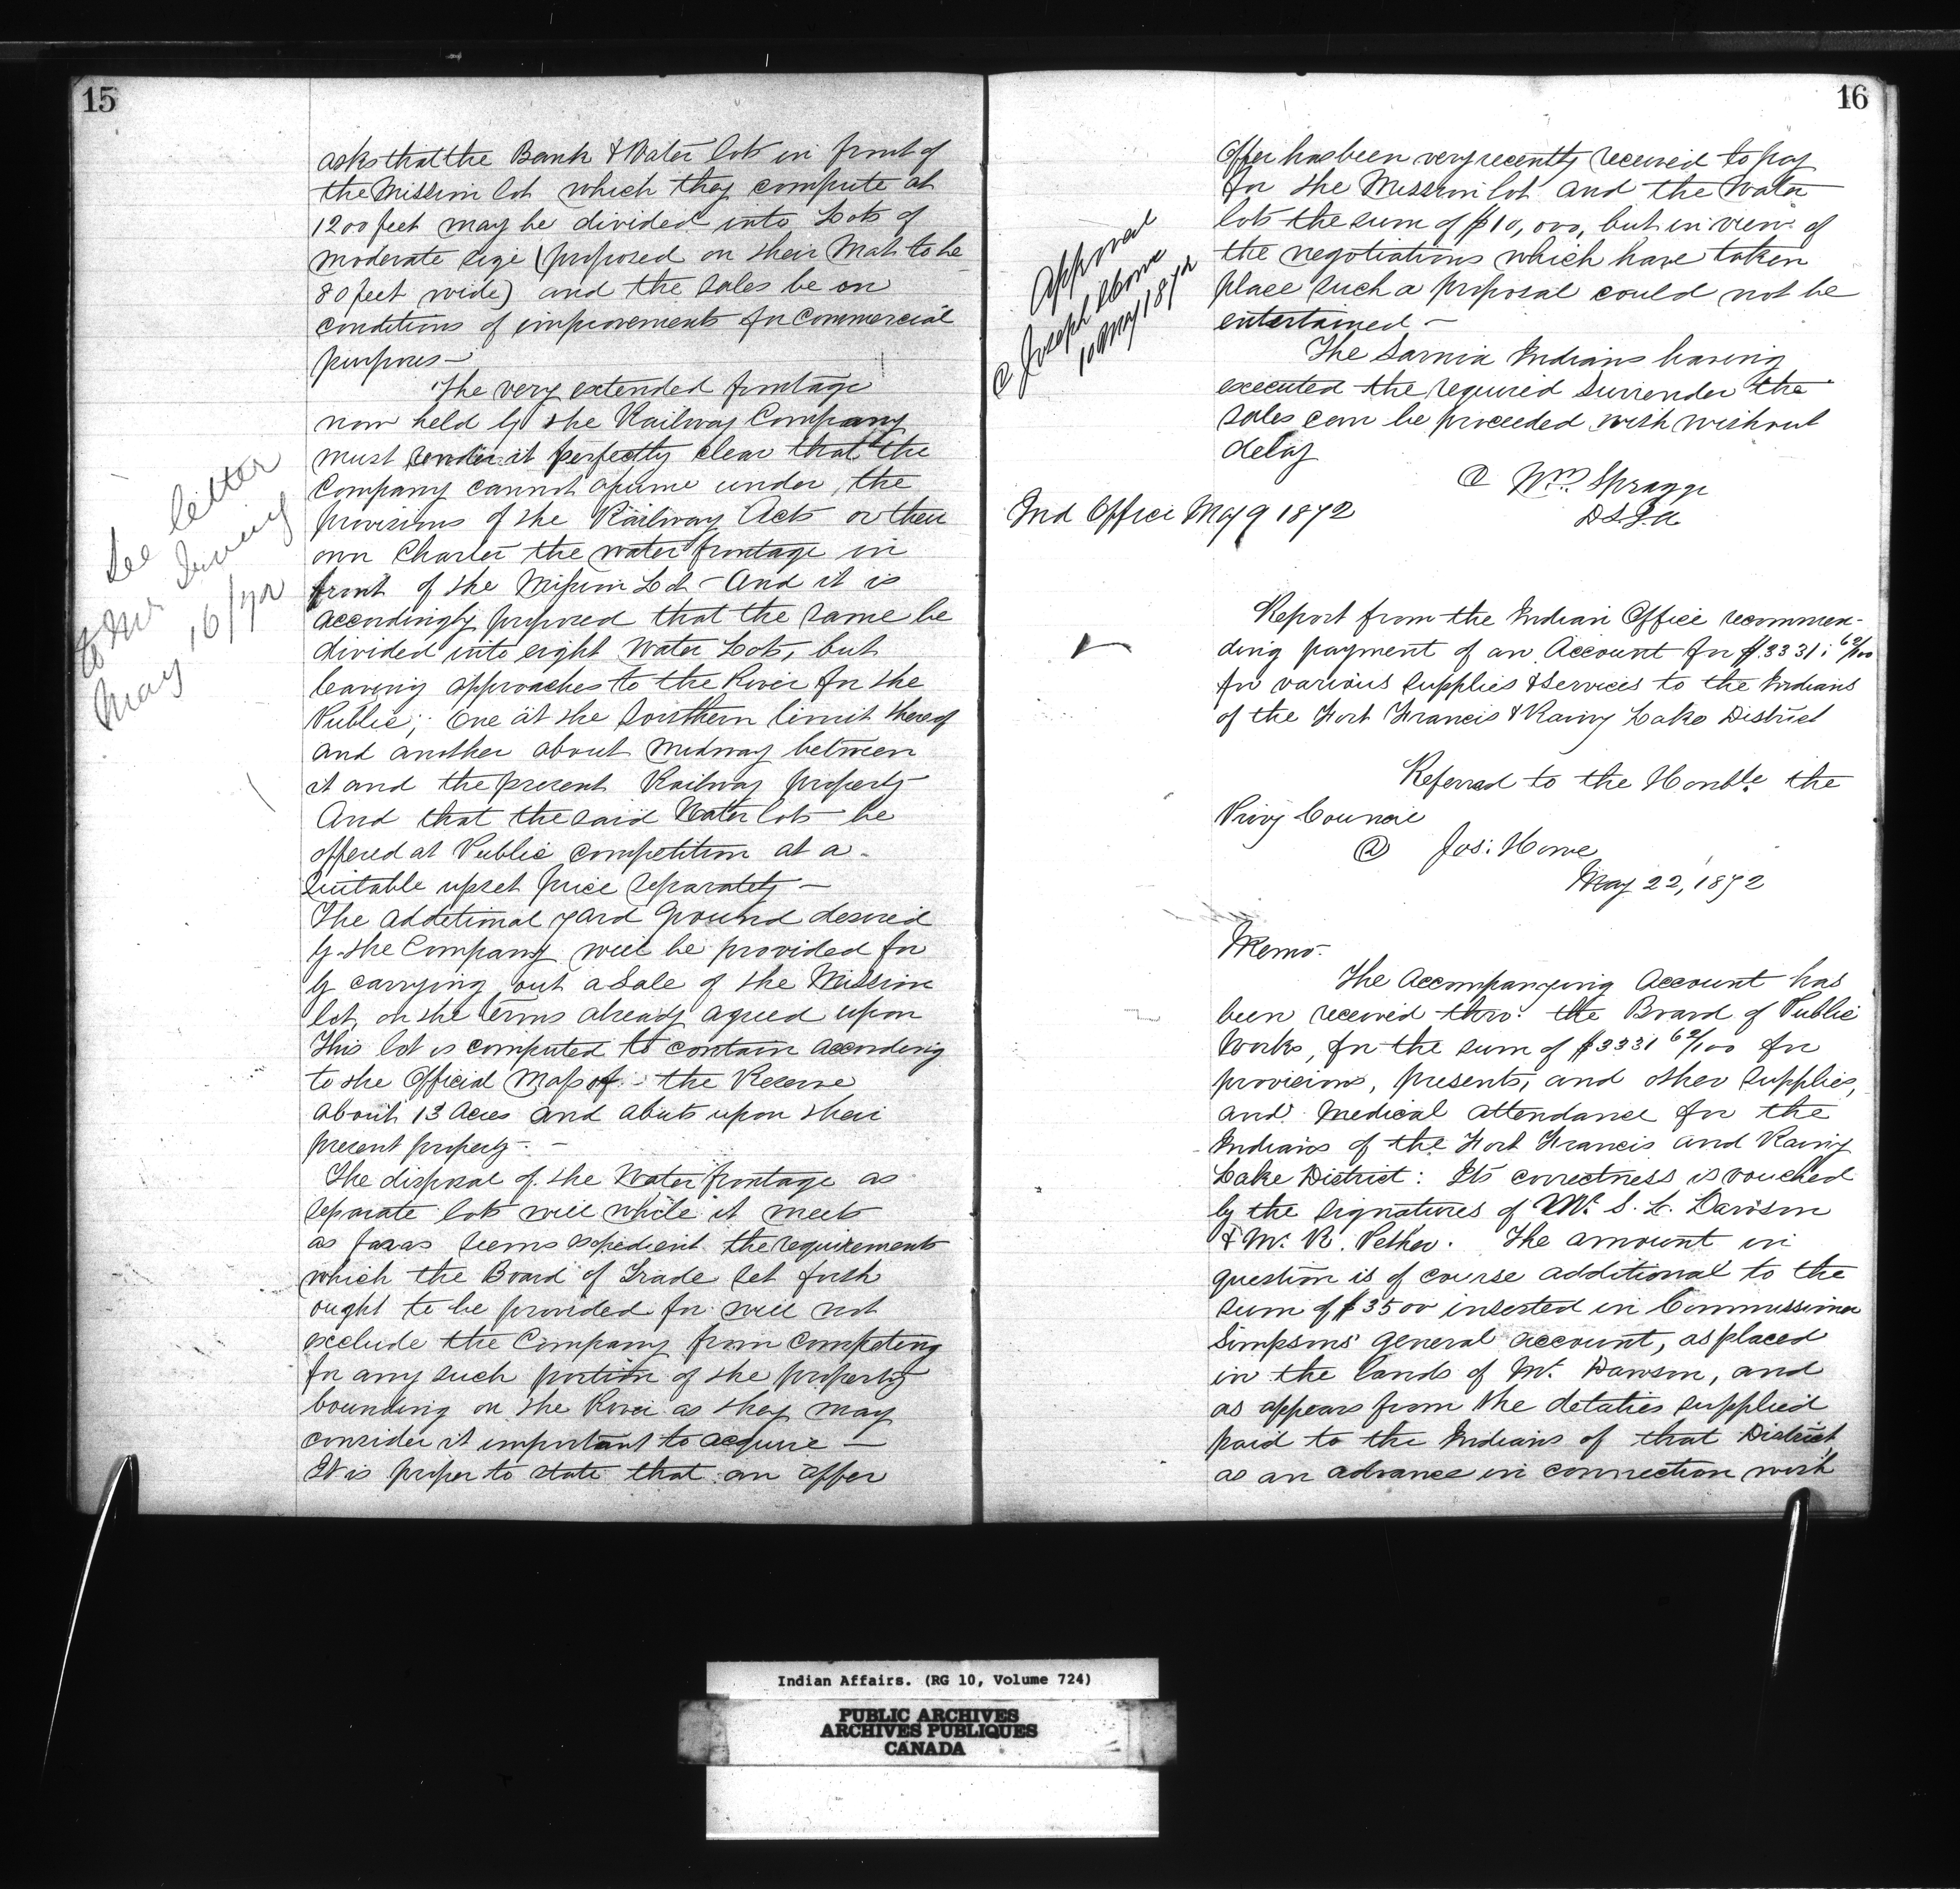 15
asks that the Bank & Water lots in front of
the Mission lot which they compute at
1200 feet may be divided into Lots of
moderate size (proposed on their Map to be
80 feet wide) and the sales be on
conditions of improvements for Commercial
purposes—
The very extended frontage
now held by the Railway Company
must render it perfectly clear that the
Company cannot assume under the
provisions of the Railway Acts or their
own Charter the water frontage in
front of the Mission Lot – And it is
accordingly proposed that the same be
divided into eight Water Lots, but
leaving approaches to the River for the
Public; One at the Southern limit thereof
and another about midway between
it and the present Railway property
And that the said Water lots be
offered at Public competition at a
suitable upset price separately —
The additional yard ground desired
by the Company will be provided for
by carrying out a Sale of the Mission
lot, on the terms already agreed upon
This lot is computed to contain according
to the Official Map of the Reserve
about 13 Acres and abuts upon their
present property. —
The disposal of the Water frontage as
separate lots will while it meets
as far as seems expedient the requirements
which the Board of Trade set forth
ought to be provided for will not
exclude the Company from competing
for any such portion of the property
bounding on the River as they may
consider it important to acquire —
It is proper to state that an offer
See letter
to Mr Irving
May 16/72
16
Offer has been very recently received to pay
for the Mission lot and the Water
lots the sum of $10,000, but in view of
the negotiations which have taken
place such a proposal could not be
entertained –
The Sarnia Indians having
executed the required Surrender the
sales can be proceeded with without
delay
@ Wm. Spragge
DSIA
Ind Office May 9 1872
Approved
@ Joseph Howe
10 May 1872
Report from the Indian Office recommen-
ding payment of an Account for $3331: 62/100
for various supplies & services to the Indians
of the Fort Francis & Rainy Lake District
Referred to the Honble. the
Privy Council
@ Jos: Howe
May 22, 1872
Memo.
The Accompanying Account has
been received thro: the Board of Public
Works, for the sum of $3331 62/100 for
provisions, presents, and other supplies,
and Medical attendance for the
Indians of the Fort Francis and Rainy
Lake District: Its correctness is vouched
by the signatures of Mr. S. L. Dawson
& Mr. R. Pether. The amount in
question is of course additional to the
sum of $3500 inserted in Commissioner
Simpsons' general account, as placed
in the hands of Mr. Dawson, and
as appears from the detalies supplied
paid to the Indians of that District,
as an advance in connection with
Indian Affairs. (RG 10, Volume 724)
PUBLIC ARCHIVES
ARCHIVES PUBLIQUES
CANADA